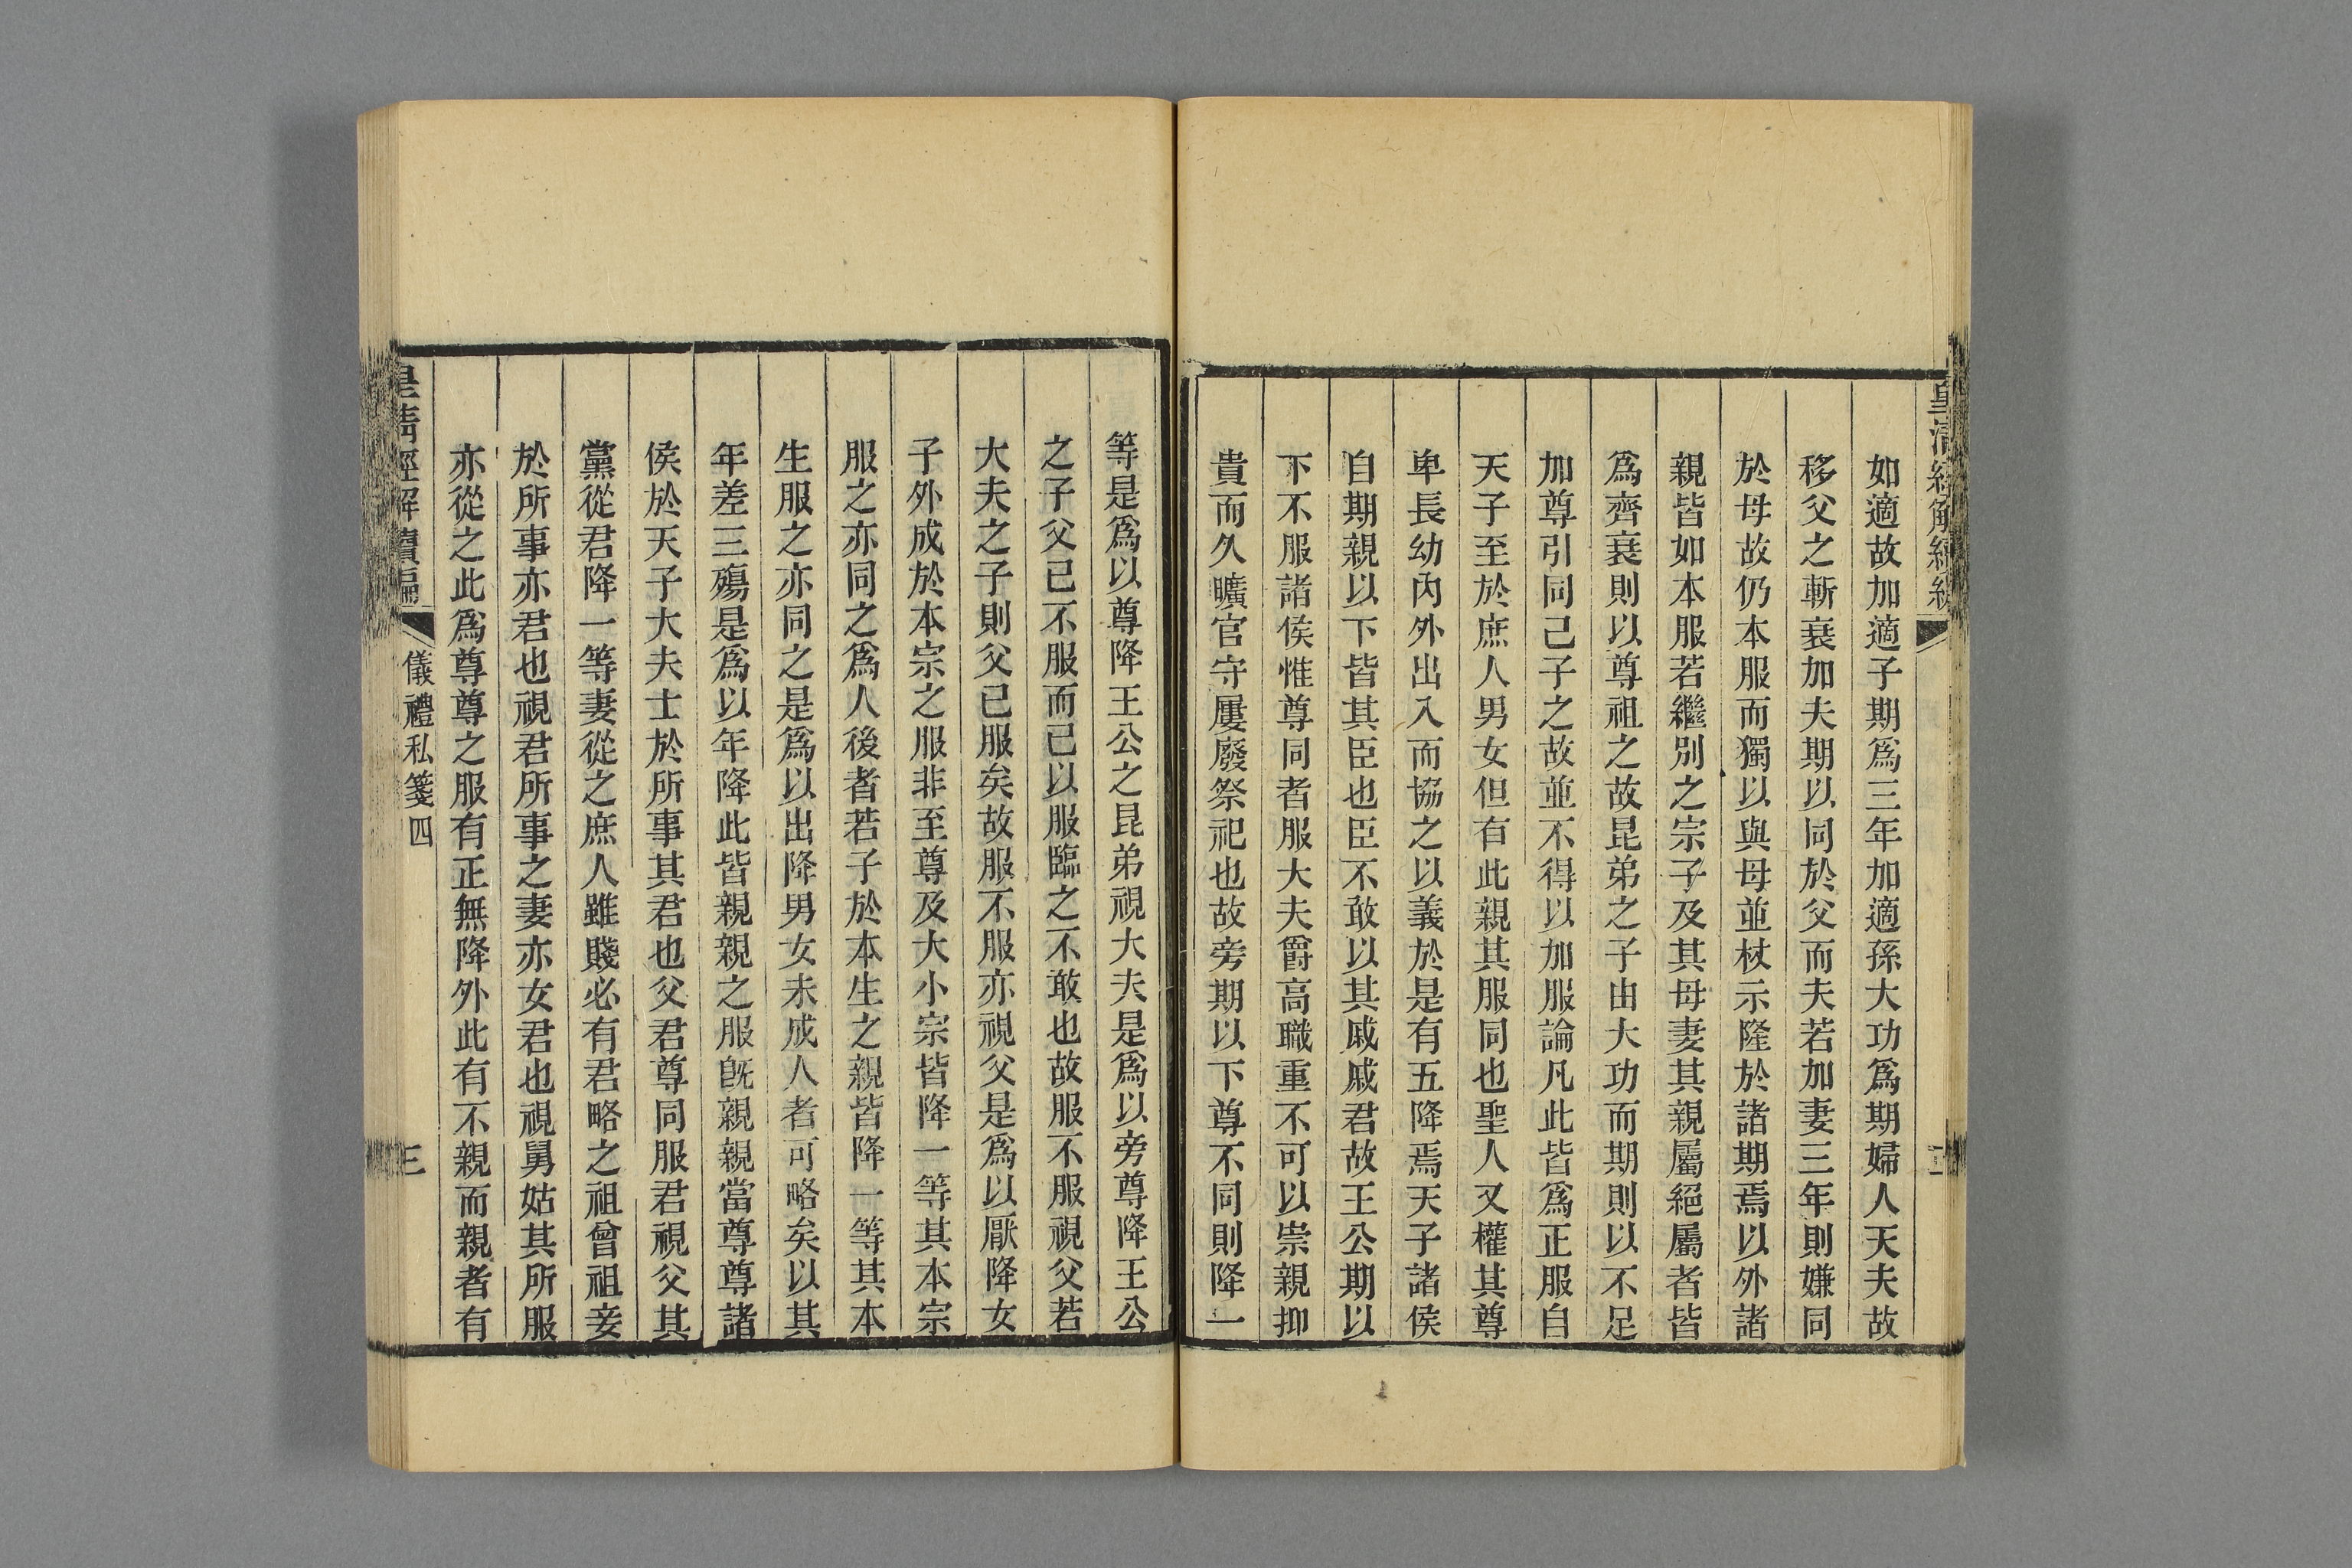 如適故加適子期爲三年加適孫大功爲期婦人天夫故
移父之斬衰加夫期以同於父而夫若加妻三年則嫌同
於母故仍本服而獨以與母並杖示隆於諸期焉以外諸
親皆如本服若繼別之宗子及其母妻其親屬絕屬者皆
爲齊衰則以尊祖之故昆弟之子由大功而期則以不足
加尊引同己子之故並不得以加服論凡此皆爲正服自
天子至於庶人男女但有此親其服同也聖人又權其尊
卑長幼內外出入而協之以義於是有五降焉天子諸侯
自期親以下皆其臣也臣不敢以其戚戚君故王公期以
下不服諸侯惟尊同者服大夫爵高職重不可以崇親抑
貴而久曠官守屢廢祭祀也故旁期以下尊不同則降一
等是爲以尊降王公之昆弟視大夫是爲以旁尊降王公
之子父已不服而已以服臨之不敢也故服不服視父若
大夫之子則父已服矣故服不服亦視父是爲以厭降女
子外成於本宗之服非至尊及大小宗皆降一等其本宗
服之亦同之爲人後者若子於本生之親皆降一等其本
生服之亦同之是爲以出降男女未成人者可略矣以其
年差三殤是爲以年降此皆親親之服旣親親當尊尊諸
侯於天子大夫士於所事其君也父君尊同服君視父其
黨從君降一等妻從之庶人雖賤必有君略之祖曾祖妾
於所事亦君也視君所事之妻亦女君也視舅姑其所服
亦從之此爲尊尊之服有正無降外此有不親而親者有
皇清經解續編
儀禮私箋四
三